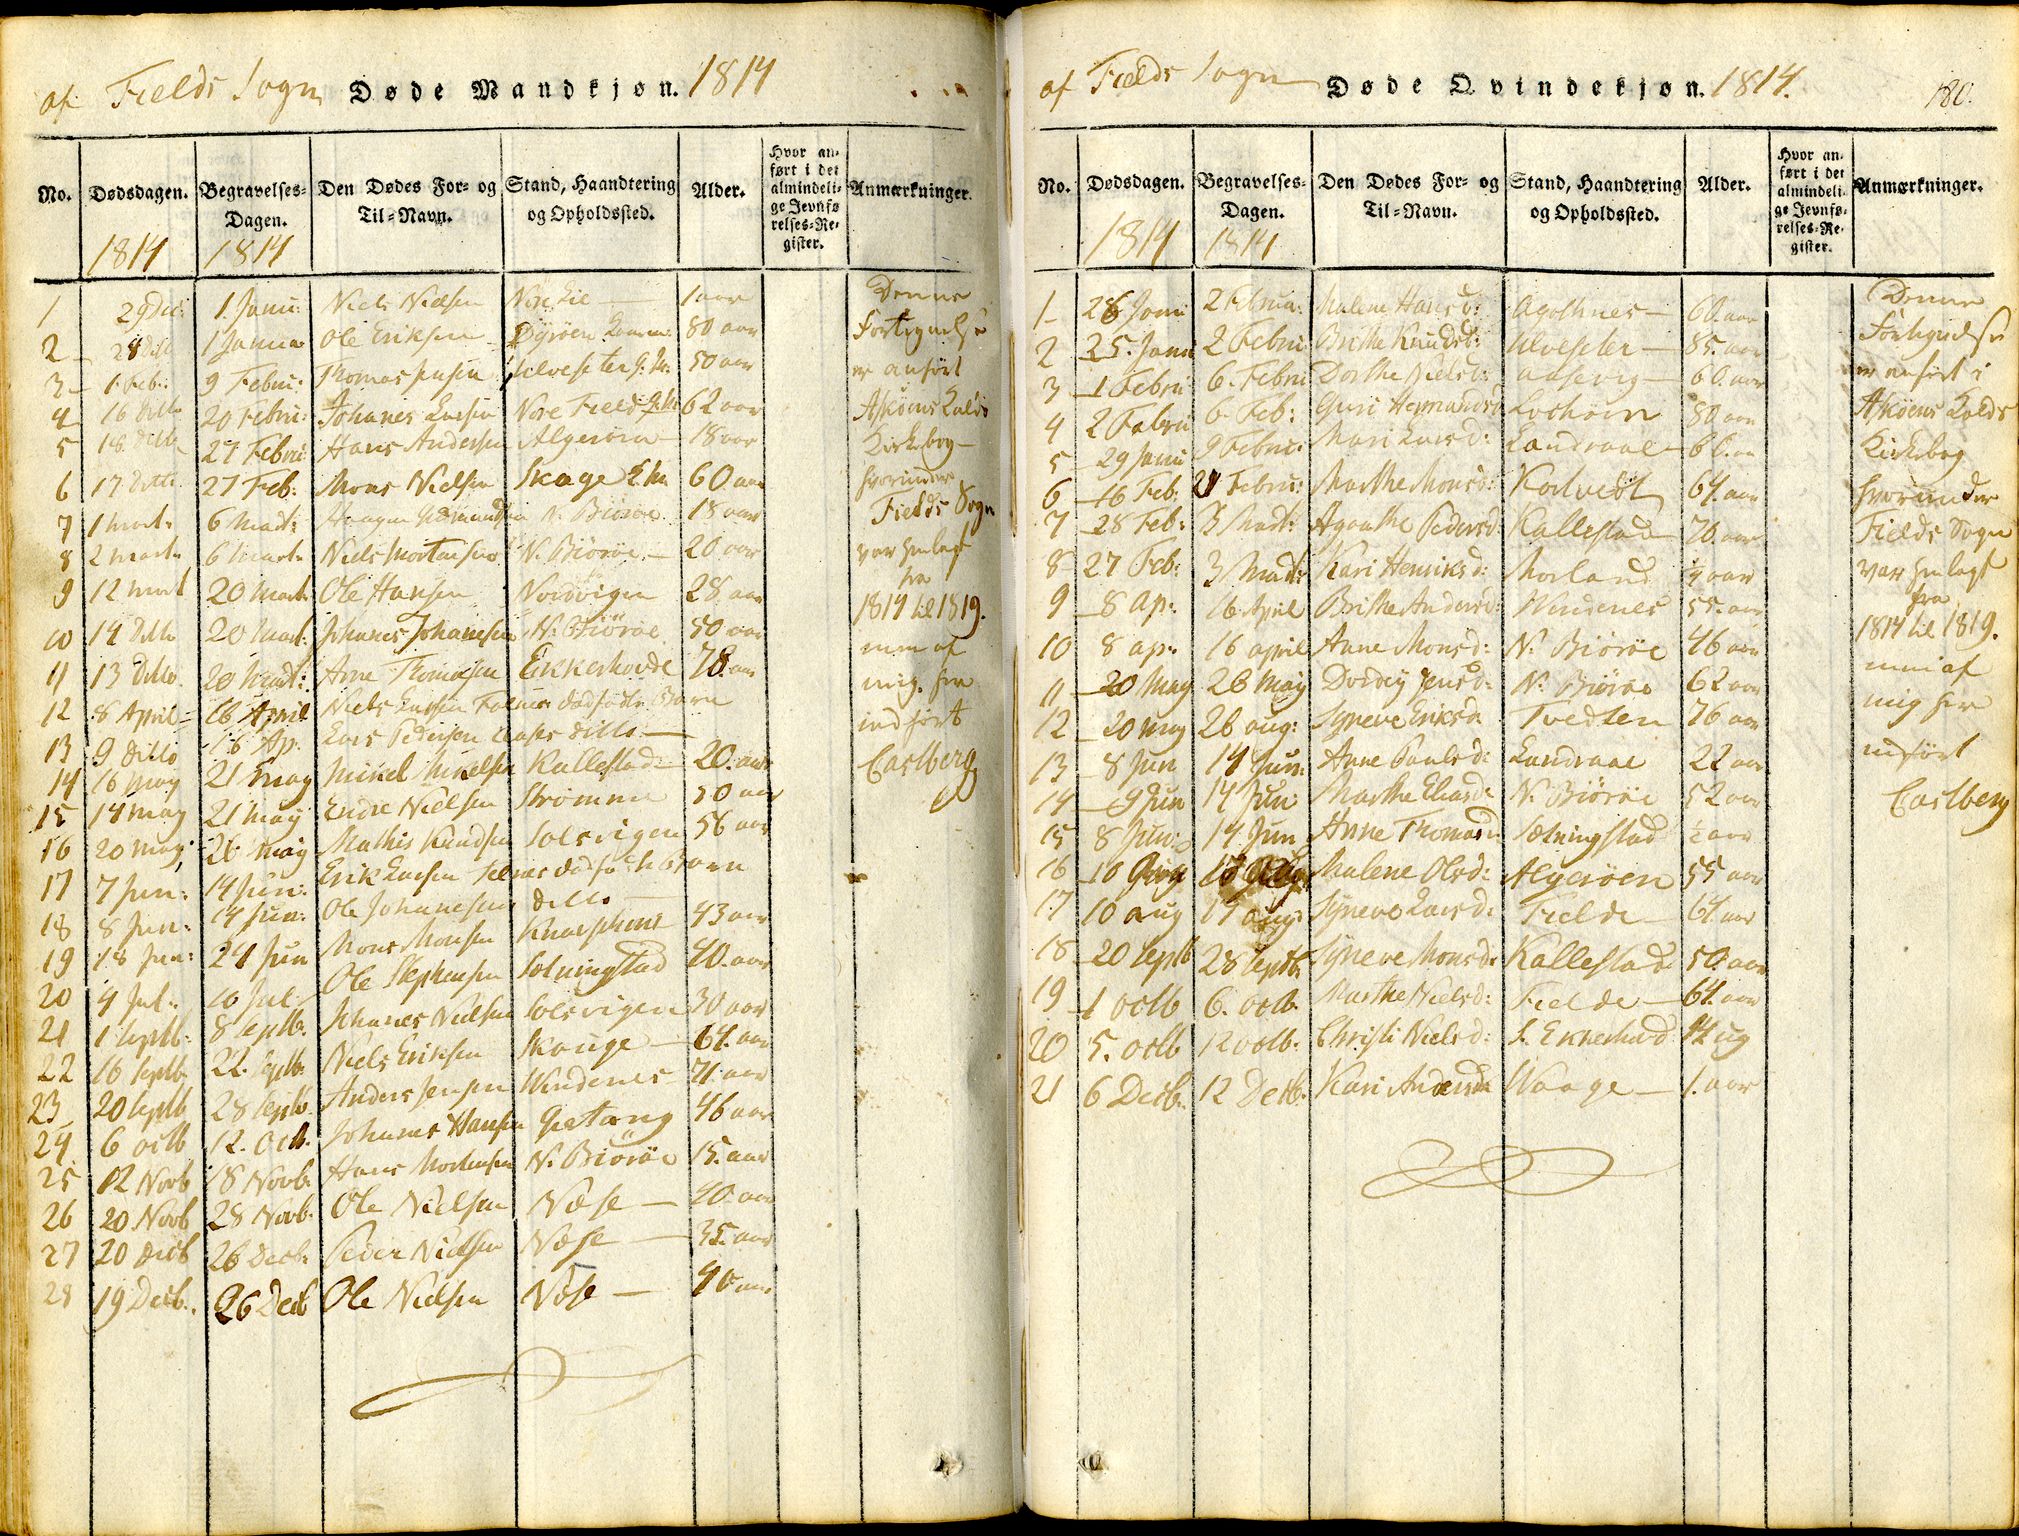 af Fields Sogn Døde Mandkjøn. 1814
No. Dødsdagen. Begravelses-Dagen. Den Dødes For- og Til-Navn. Stand, Haandtering og Opholdssted. Alder. Hvor anført i det almindelige Jevnførelses-Register. Anmærkninger.
1814 1814
1 29 Dec: 1. Janu: Niels Nielsen 1 aar
2 28 Ditto 1 Janua Ole Eriksen Dÿrøen 80 aar
3 1. Feb: 9 Febru: Thomas Jensen Ulveseter 50 aar
4 16 Ditto 20 Febru: Johanes Larsen Nore Field 62 aar
5 18. Ditto 27 Febru: Hans Andersen Algerøen 18 aar
6 17 Ditto 27 Feb: Mons Nielsen Skoge 60 aar
7 1 Mart: 6 Mart: Haagen N: Biørøe 18 aar
8 2 Marts 6 Marts Niels Mortensen N. Biørøe 20 aar
9 12 Mart 20 Mart: Ole Hansen Nordvigen 28 aar
10 14 Ditto 20 Mart: Johanes Johanesen N: Biørøe 50 aar
11 13 Ditto 20 Mart: Arne Thomasen Ekkerhovde 78. aar
12 8 April 16 April Niels Larsen Følnes dødfødte Barn
13 9 Ditto 16 Ap. Lars Pedersen Ditto
14 16 May 21 May Mikel Mikelsen Kallestad 20. aar
15 14 May 21 Maÿ Endre Nielsen Strømme 50 aar
16 20 May 26 Maÿ Mathis Knudsen Solsvigen 56 aar
17 7 Jun: 14 Jun: Erik Larsen Telnes dødfødte Barn
18 8 Jun: 14 Jun: Ole Johanesen Ditto
19 18 Jun: 24 Jun Mons Monsen Knapskog 43 aar
20 4 Jul: 10 Jul: Ole Stephensen Sælningstad 40. aar
21 1 Septb: 8 Septb. Johanes Nielsen Solsvigen 30 aar
22 16 Septb 22. Septb. Niels Eriksen Skouge 64. aar
23 20 Septb 28 Septb. Anders Jensen Windenes 71 aar
24 6 Octb 12. Octb. Johanes Hansen Getang 46 aar
25 12 Novb 18 Novb. Hans Mortensen N: Biørøe 15. aar
26 20 Novb 28 Novb. Ole Nielsen Næse 40. aar
27 20 Decb 26 Decb: Peder Nielsen Næse 35. aar
28 19 Decb. 26 Decb Ole Nielsen Næse 40 aar
Denne
Fortegnelse
er anført
i Askøens Kalds
Kirkebog
hvorunder
Fields Sogn
var henlagt
fra
1814 til 1819.
men af
mig her
indført
Carlberg
af Fields Sogn Døde Qvindekjøn. 1814. 180.
No. Dødsdagen. Begravelses-Dagen. Den Dødes For- og Til-Navn. Stand, Haandtering og Opholdssted. Alder. Hvor anført i det almindelige Jevnførelses-Register. Anmærkninger.
1814 1814
1 26 Janu 2 Februa: Malene Hansd: Agothnes 60 aar
2 25. Janu 2 Febru Brithe Knudsd: Ulveseter 85. aar
3 1 Febru 6. Febru Dorthe Nielsd: 60. aar
4 2 Febru 6. Feb: Guri Hermansd 80 aar
5 29 Janu 9 Febru: Mari Larsd: Landraae 60. aar
6 16 Feb: 21 Febru: Marthe Monsd: Kortvedt 64. aar
7 28 Feb: 3 Mart: Agathe Pedersd: Kallestad 70. aar
8 27 Feb: 3 Mart: Kari Henriksd: Morland ¼ aar
9 8 Ap: 16 April Brithe Andersd: Windenes 55. aar
10 8 ap: 16 april Anne Monsd: N: Biørøe 46 aar
11 20 May 26 Maÿ Dordeÿ Jensd: N: Biørøe 62 aar
12 20 May 26 aug: Sÿneve Eriksd: Tvedten 76 aar
13 8 Jun 14 Jun: Anne Paulsd: Landraae 22 aar
14 9 Jun 14 Jun: Marthe Eliasd: N: Biørøe 52 aar
15 8 Jun: 14 Jun Anne Thomasd: Sælningstad ½ aar
16 10 Malene Olsd: Algerøen 55 aar
17 10 aug 17 aug: Sÿneve Larsd: Fielde 64 aar
18 20 Septb 28 Septb. Sÿneve Monsd: Kallestad 50. aar
19 1 Octb 6. Octb. Marthe Nielsd: Fielde 64. aar
20 5. Octb 12 Octb: Christi Nielsd: 14 ug
21 6 Decb: 12 Decb: Kari Andersd: Waage 1. aar
Denne
Fortegnelse
er anført i
Askøens Kalds
Kirkebog
hvorunder
Fields Sogn
var henlagt
fra
1814 til 1819.
men af
mig her
indført
Carlberg